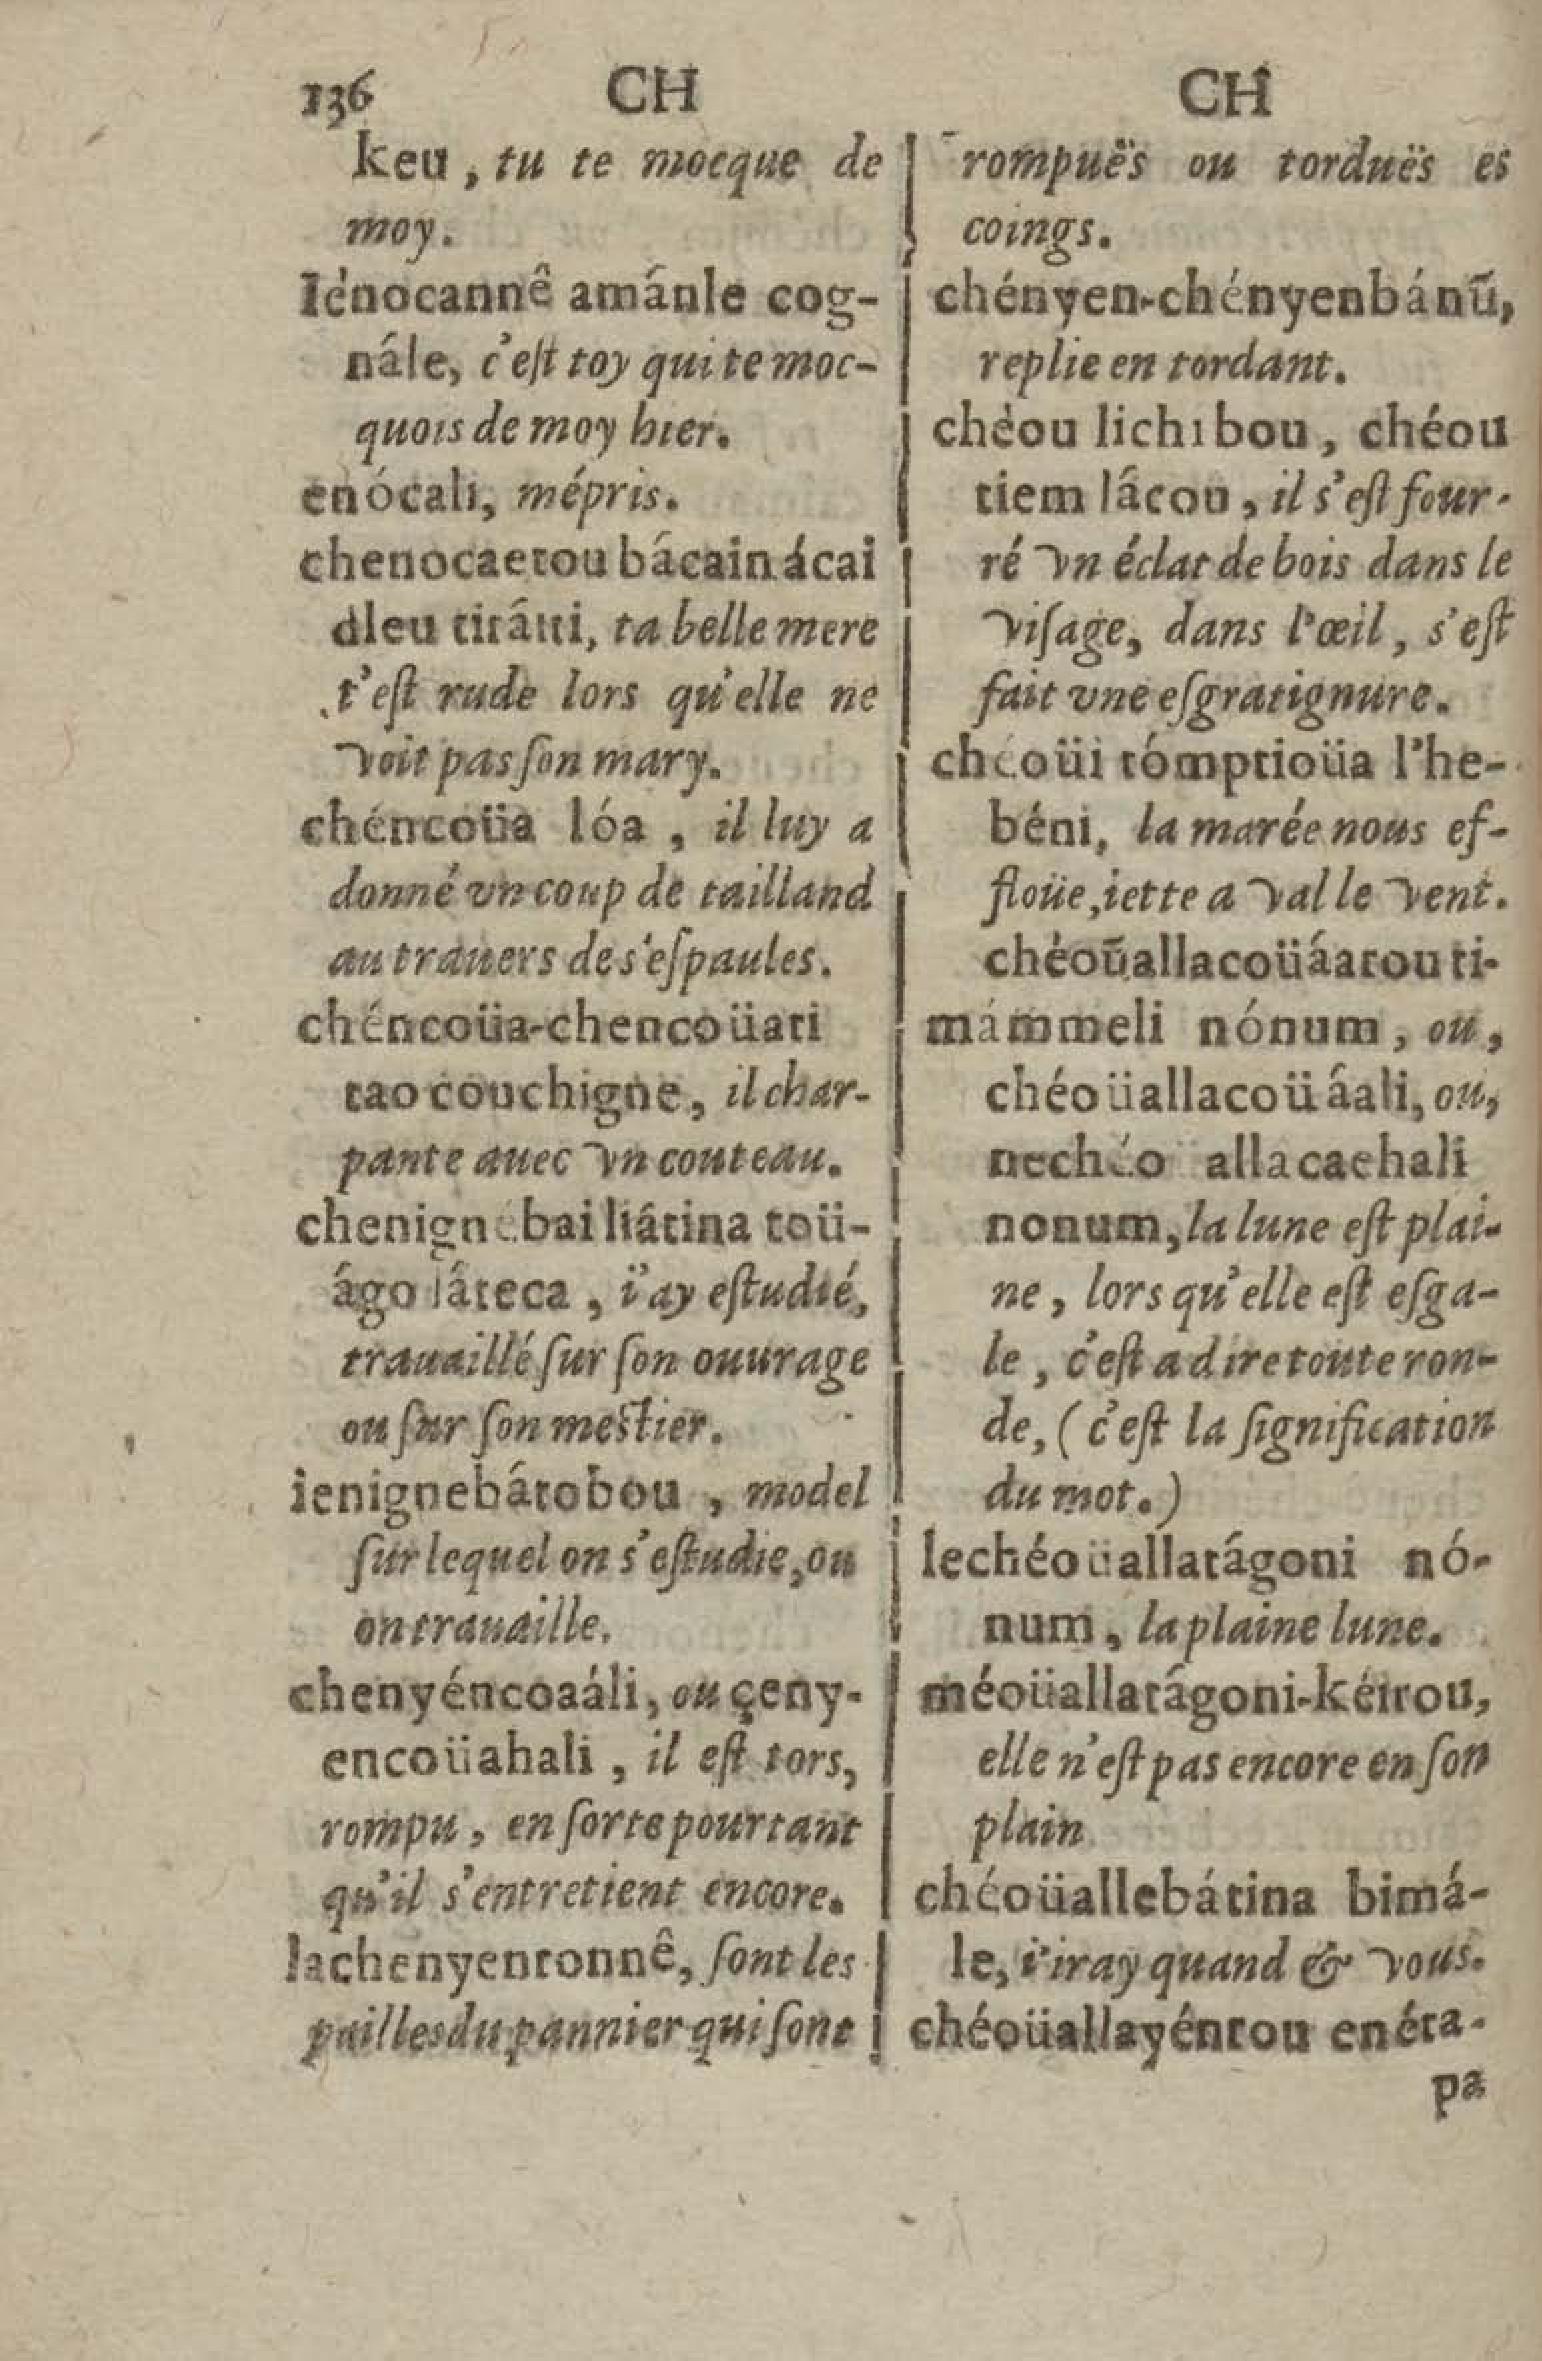 136 CH CH
keu, tu te mocque de
moy.
Iénocannê amánle cog-
nále, c'eſt toy qui te moc-
quois de moy hier.
enócali, mépris.
chenocaetou bácain ácai
dleu tirátti, ta belle mere
t'eſt rude lors qu'elle ne
voit pas ſon mary.
chéncoüa lóa, il luy a
donné vn coup de tailland
au trauers de s'eſpaules.
chéncoüa-chencoüati
tao couchigne, il char-
pante auec vn couteau.
chenignébai liátina toü-
ágo láteca, i'ay eſtudié,
trauaillé ſur ſon ouurage
ou ſur ſon meſtier.
ienignebátobou, model
ſur lequel on s'eſtudie, ou
on trauaille.
chenyéncoaáli, ou çeny-
encoüahali, il eſt tors,
rompu, en ſorte pourtant
qu'il s'entretient encore.
lachenyentonnê, ſont les
pailles du pannier qui ſont
rompuës ou torduës es
coings.
chényen-chényenbánũ,
replie en tordant.
chéou lichibou, chéou
tiem lácou, il s'eſt four-
ré vn éclat de bois dans le
viſage, dans l'œil, s'eſt
fait vne eſgratignure.
chéoüi tómptioüa l'he-
béni, la marée nous ef-
floüe, iette a val le vent.
chéoũallacoüáatou ti-
mámmeli nónum, ou,
chéoüallacoüáali, ou,
nechéo allacaehali
nonum, la lune eſt plai-
ne, lors qu'elle eſt eſga-
le, c'eſt a dire toute ron-
de, (c'eſt la ſignification
du mot.)
lechéoüallatágoni nó-
num, la plaine lune.
méoüallatágoni-kéirou,
elle n'eſt pas encore en ſon
plain
chéoüallebátina bimá-
le, i'iray quand & vous.
chéoüallayéntou enéta-
pa